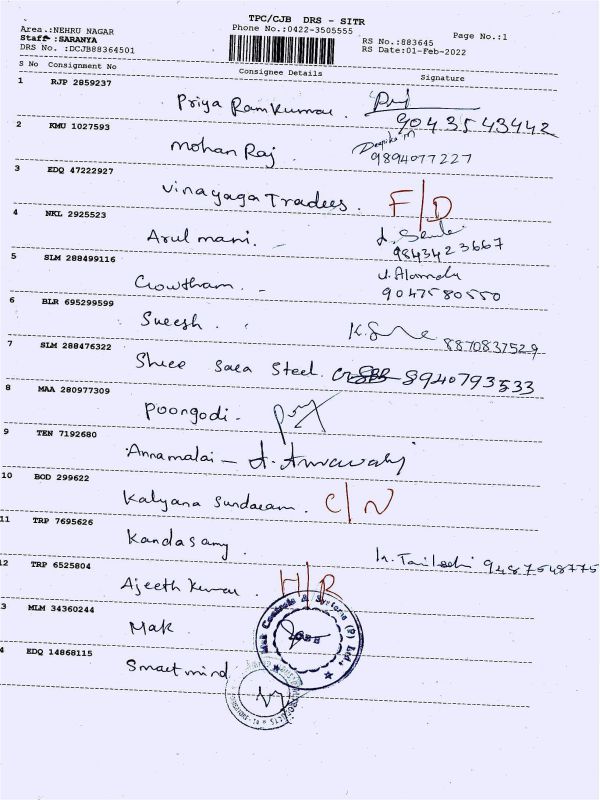 TPC/CJB DRS - SITR
Area.:NEHRU NAGAR Phone No.:0422-3505555 Page No.:1
Staff :SARANYA RS No.:883645
DRS No. :DCJB88364501 RS Date:01-Feb-2022
S No Consignment No Consignee Details Signature
1 RJP 2859237
Priya Ramkumar.
9043543442
2 KMU 1027593
Mohan Raj. Deepika M
9894077227
3 EDQ 47222927
Vinayaga Tradees. F/D
4 NKL 2925523
Arul mani.
9843423667
5 SLM 288499116
Gowtham. -
9047580550
6 BLR 695299599
Sueesh. K.S
8870837529
7 SLM 288476322
Shree Saea Steel. 8940793533
8 MAA 280977309
Poongodi.
9 TEN 7192680
Annamalai -
10 BOD 299622
Kalyana Sundaeam. C/N
11 TRP 7695626
Kandasamy. 9487548775
12 TRP 6525804
Ajeeth Kumar. H/R
3 MLM 34360244
Mak Mak Controls & Systems (P) Ltd.,
4 EDQ 14868115
Smaetmind